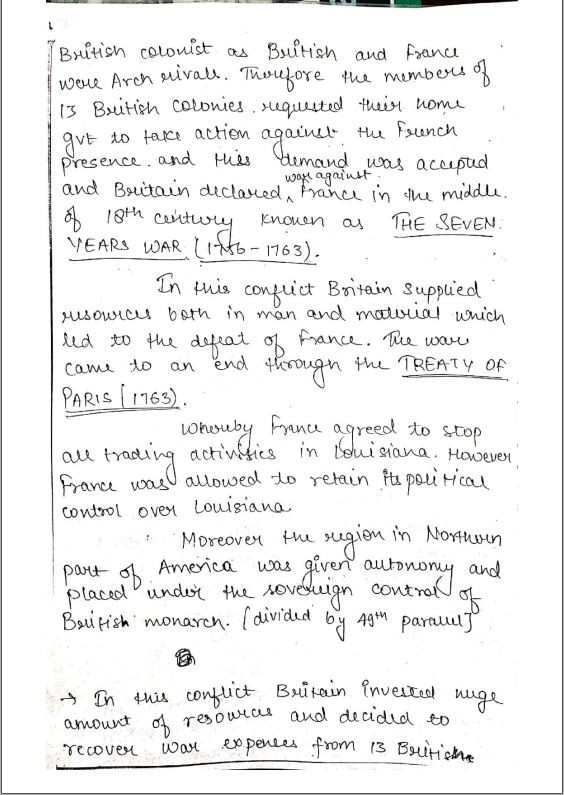 British colonist as British and France
were Arch rivals. Therefore the members of
13 British Colonies requested their home
gvt to take action against the French
presence. and this demand was accepted
and Britain declared ^ war against France in the middle.
of 18th century known as THE SEVEN
YEARS WAR (1756-1763).
In this conflict Britain supplied
resources both in man and material which
led to the defeat of France. The war
came to an end through the TREATY OF
PARIS (1763).
Whereby France agreed to stop
all trading activities in Louisiana. However
France was allowed to retain its political
control over Louisiana
Moreover the region in Northern
part of America was given autonomy and
placed under the sovereign control of
British monarch. [divided by 49th parallel]
→ In this conflict Britain invested huge
amount of resources and decided to
recover war expenses from 13 British